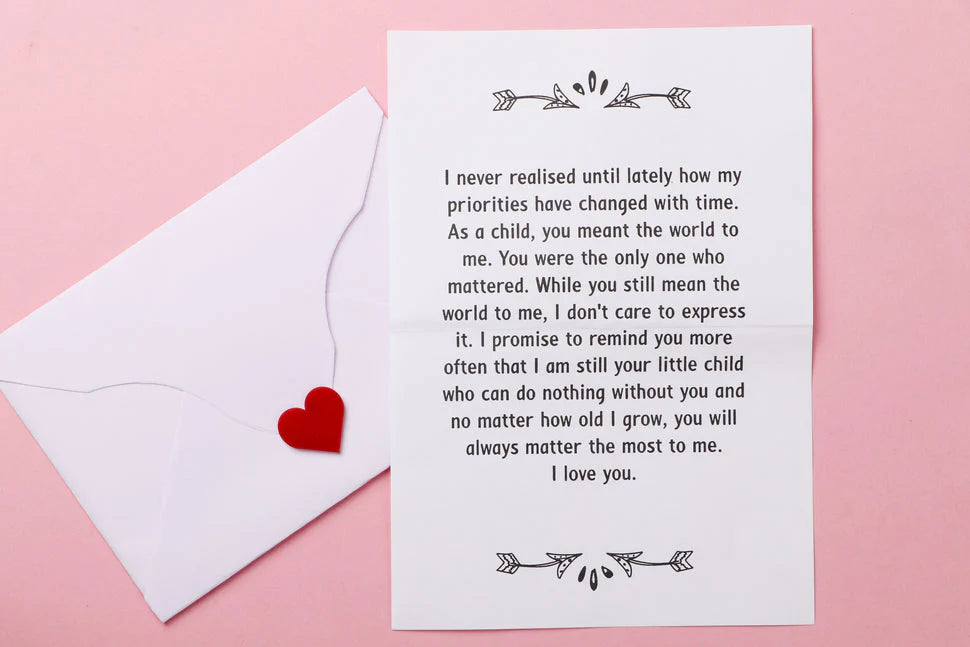 I never realised until lately how my
priorities have changed with time.
As a child, you meant the world to
me. You were the only one who
mattered. While you still mean the
world to me, I don't care to express
it. I promise to remind you more
often that I am still your little child
who can do nothing without you and
no matter how old I grow, you will
always matter the most to me.
I love you.